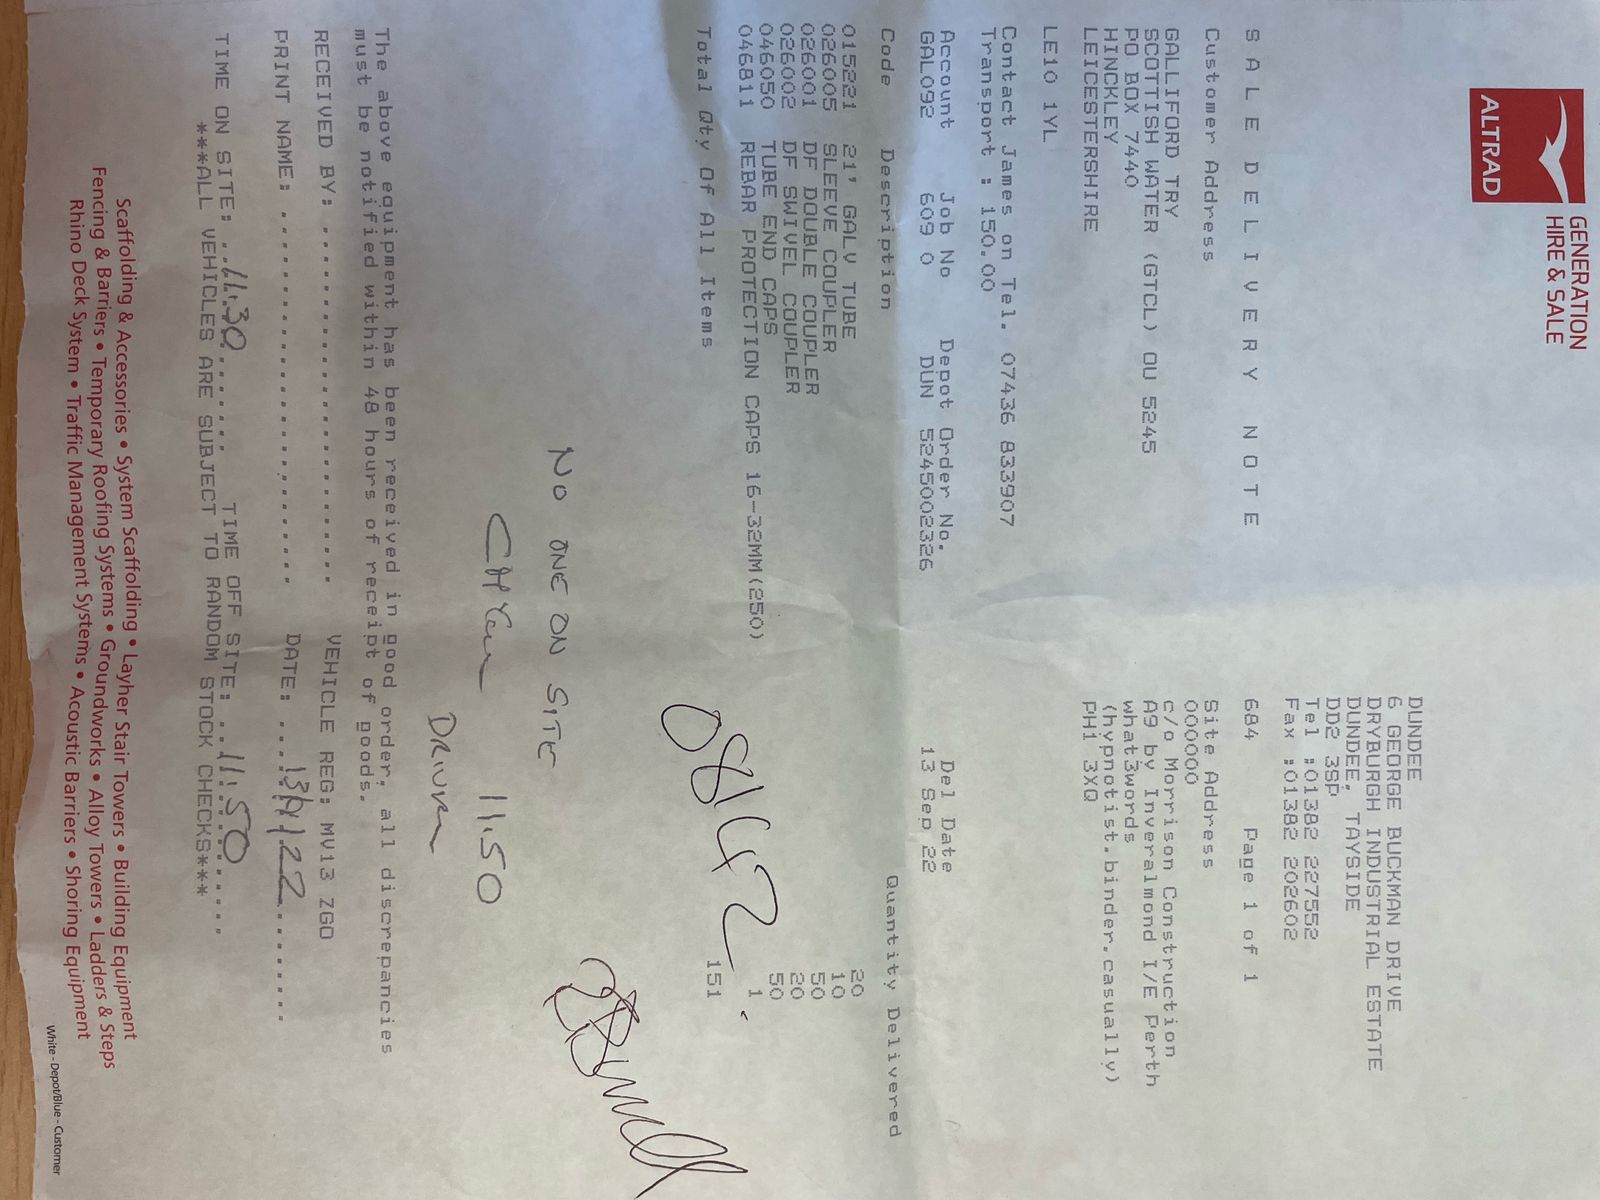 ALTRAD
GENERATION
HIRE & SALE
DUNDEE
6 GEORGE BUCKMAN DRIVE
DRYBURGH INDUSTRIAL ESTATE
DUNDEE, TAYSIDE
DD2 3SP
Tel :01382 227552
Fax :01382 202602
S A L E D E L I V E R Y N O T E 684 Page 1 of 1
Customer Address Site Address
000000
GALLIFORD TRY c/o Morrison Construction
SCOTTISH WATER (GTCL) OU 5245 A9 by Inveralmond I/E Perth
PO BOX 7440 what3words
HINCKLEY (hypnotist.binder.casually)
LEICESTERSHIRE PH1 3XQ
LE10 1YL
Contact James on Tel. 07436 833907
Transport : 150.00
Account Job No Depot Order No. Del Date
GAL092 609 0 DUN 5245002326 13 Sep 22
Code Description Quantity Delivered
015221 21' GALV TUBE 20
026005 SLEEVE COUPLER 10
026001 DF DOUBLE COUPLER 50
026002 DF SWIVEL COUPLER 20
046050 TUBE END CAPS 50
046811 REBAR PROTECTION CAPS 16-32MM(250) 1
Total Qty Of All Items 151
NO ONE ON SITE
11.50
DRIVER
The above equipment has been received in good order, all discrepancies
must be notified within 48 hours of receipt of goods.
RECEIVED BY: VEHICLE REG: MV13 ZGO
PRINT NAME: DATE:
TIME ON SITE: 11:30 TIME OFF SITE: 11:50
***ALL VEHICLES ARE SUBJECT TO RANDOM STOCK CHECKS***
Scaffolding & Accessories • System Scaffolding • Layher Stair Towers • Building Equipment
Fencing & Barriers • Temporary Roofing Systems • Groundworks • Alloy Towers • Ladders & Steps
Rhino Deck System • Traffic Management Systems • Acoustic Barriers • Shoring Equipment
White - Depot/Blue - Customer